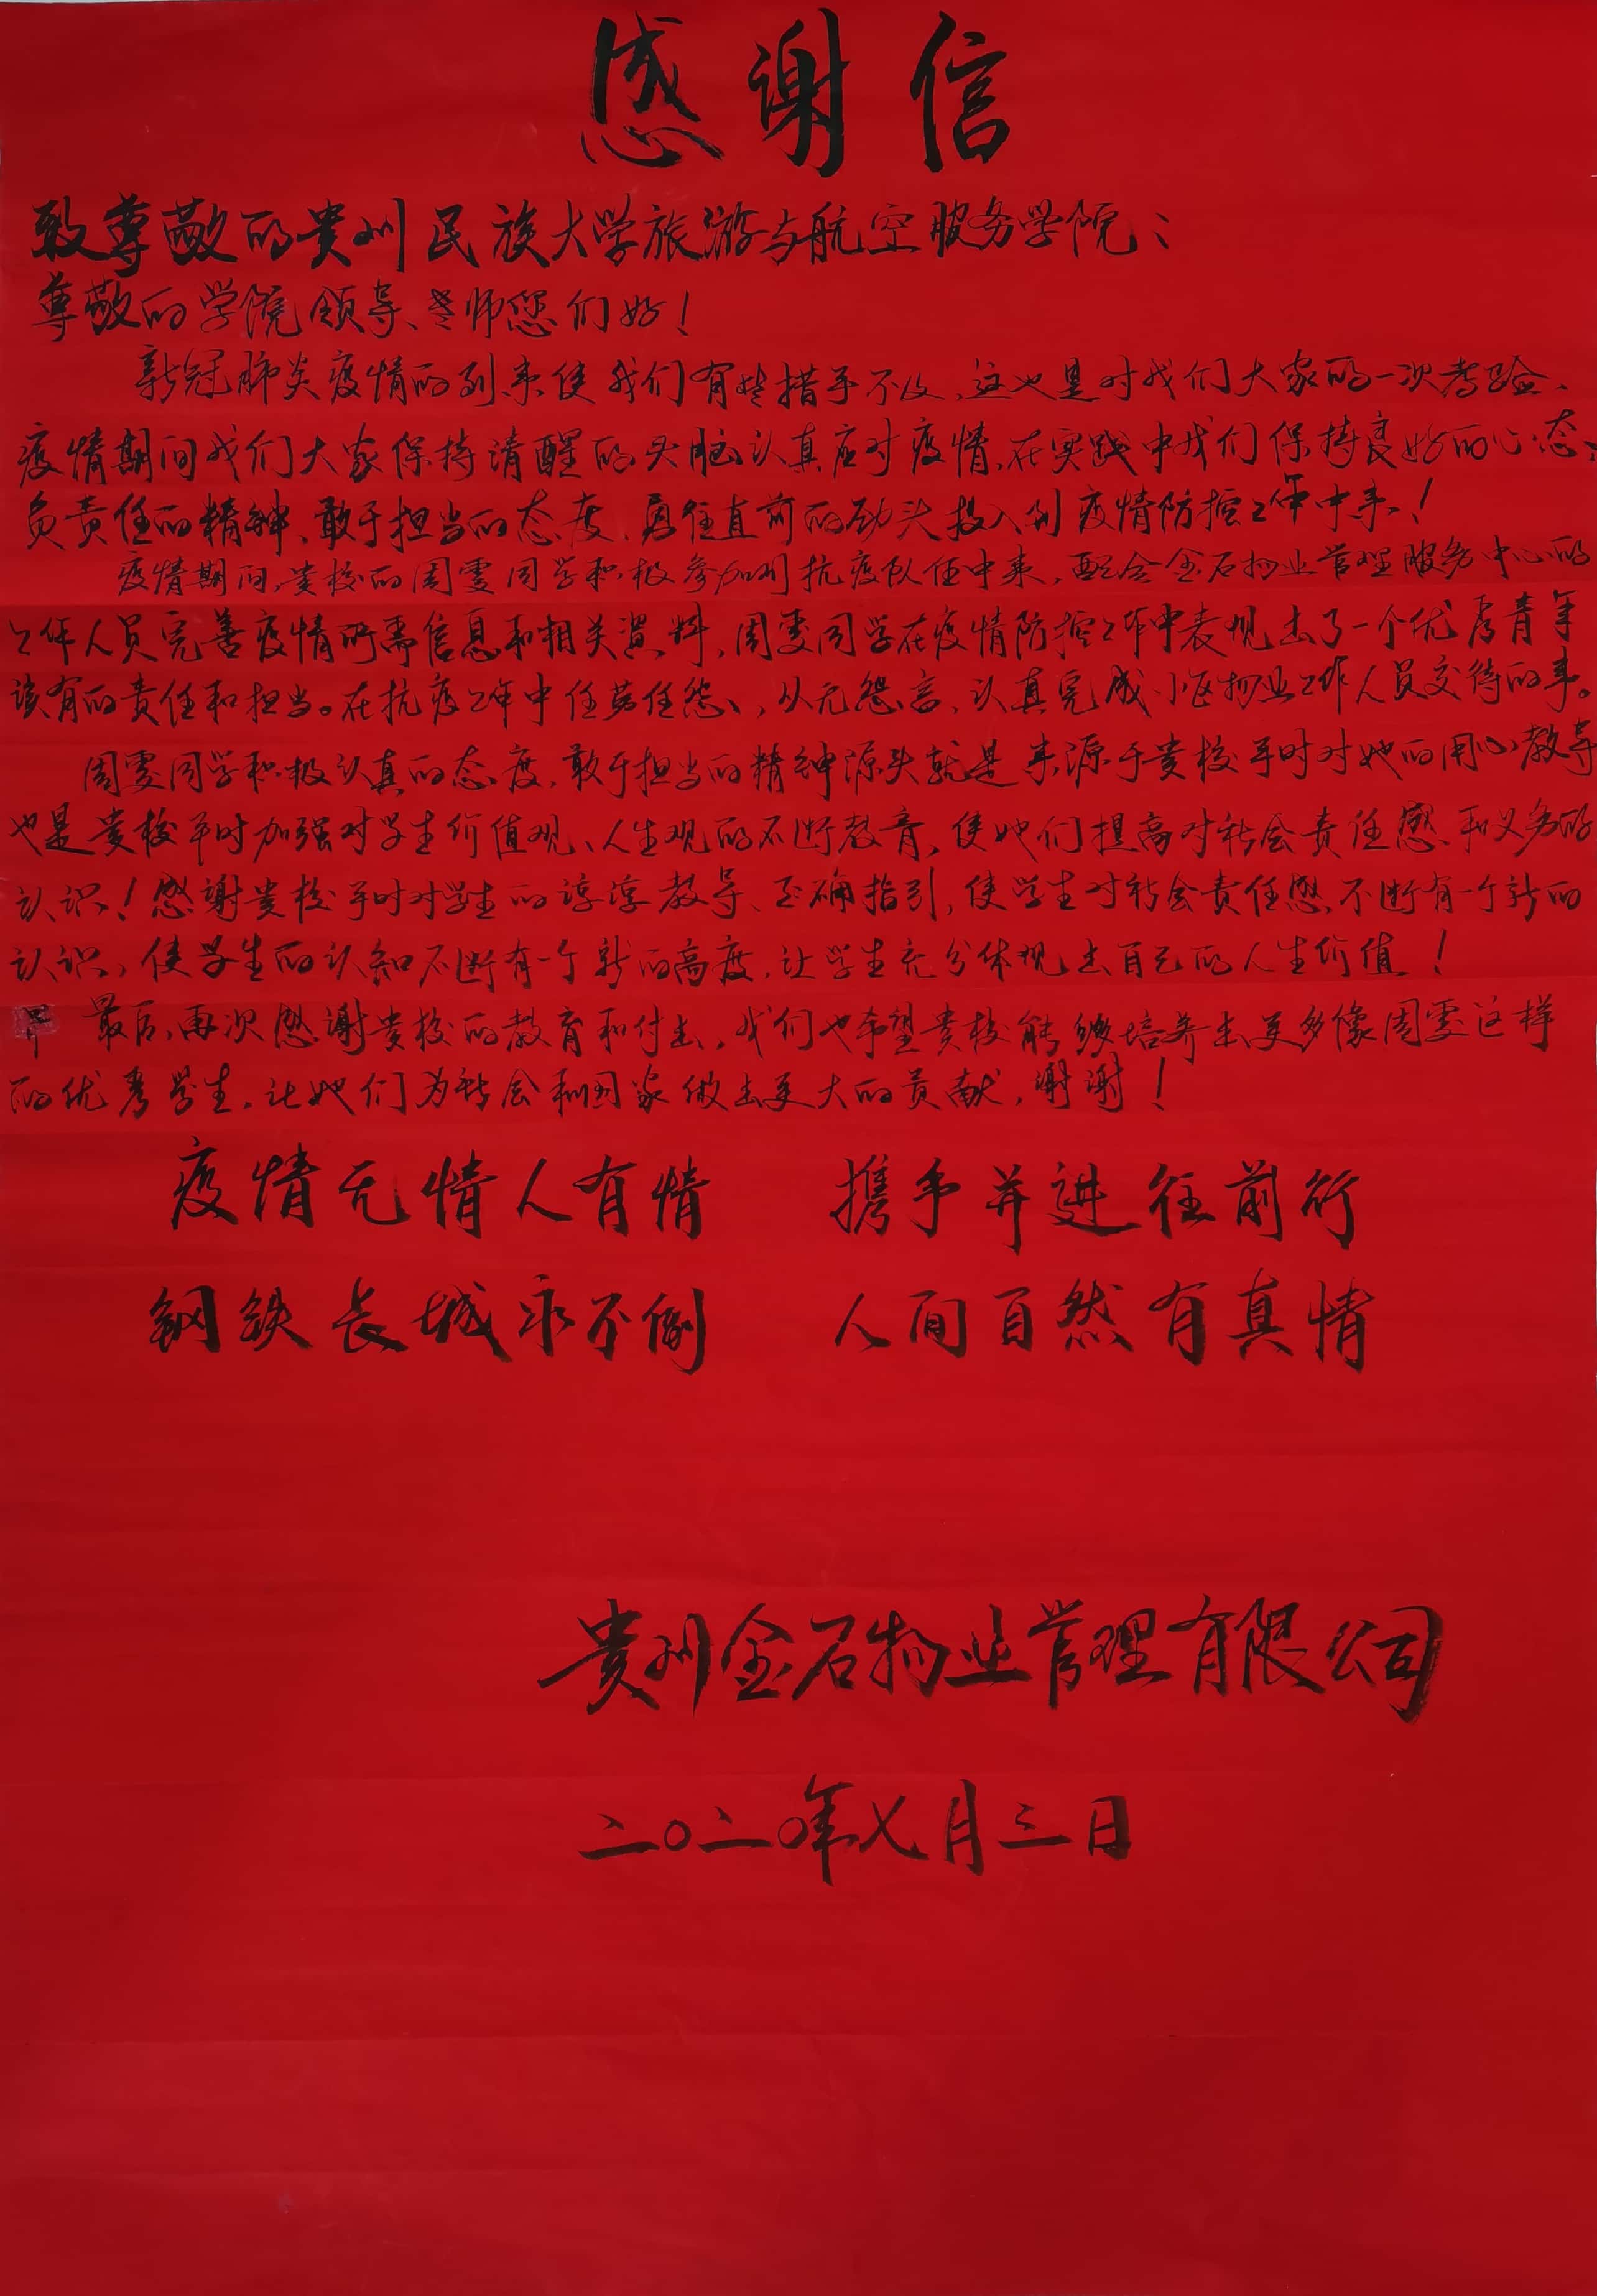 感谢信
致尊敬的贵州民族大学旅游与航空服务学院：
尊敬的学院领导、老师您们好！
新冠肺炎疫情的到来使我们有些措手不及，这也是对我们大家的一次考验、
疫情期间我们大家保持清醒的头脑认真应对疫情、在实践中我们保持良好的心态；
负责任的精神、敢于担当的态度、勇往直前的劲头投入到疫情防控工作中来！
疫情期间，贵校的周雯同学积极参加到抗疫队伍中来，配合金石物业管理服务中心的
工作人员完善疫情所需信息和相关资料，周雯同学在疫情防控工作中表现出了一个优秀青年
该有的责任和担当。在抗疫工作中任劳任怨，从无怨言、认真完成小区物业工作人员交待的事。
周雯同学积极认真的态度，敢于担当的精神源头就是来源于贵校平时对她的用心教导
也是贵校平时加强对学生价值观、人生观的不断教育，使她们提高对社会责任感和义务的
认识！感谢贵校平时对学生的谆谆教导、正确指引，使学生对社会责任感不断有一个新的
认识，使学生的认知不断有一个新的高度，让学生充分体现出自己的人生价值！
最后，再次感谢贵校的教育和付出，我们也希望贵校能够培养出更多像周雯这样
的优秀学生，让她们为社会和国家做出更大的贡献，谢谢！
疫情无情人有情 携手并进往前行
钢铁长城永不倒 人间自然有真情
贵州金石物业管理有限公司
二〇二〇年七月三日